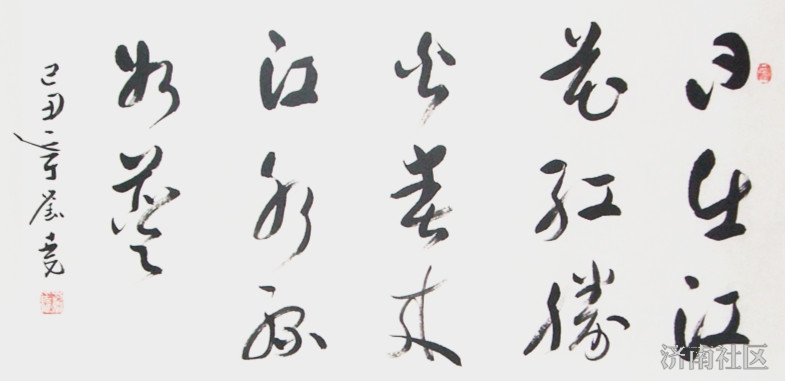 日出江
花红勝
火春来
江水绿
如蓝
己丑
济南社区